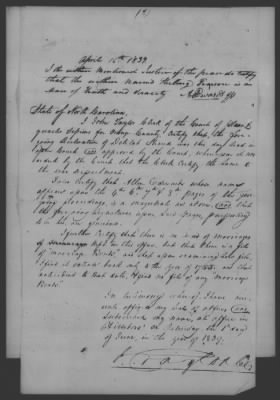 April 16th 1839
I the within Mentioned Justice of the peace do certify
that the within Named Sterling Pearson is a
Man of Truth and veracity A Edwards JP
State of North Carolina
I John Taylor Clerk of the Court of Pleas &
quarter Sessions for County, certify that the fore
going declaration of was this day had in
open Court and approved by the Court, when it was or
dered by the Court that the Clerk certify the same to
the war department.
I also certify that Allen whose name
appears upon the 4th 6th 7th & 8th pages of the fore
going proceedings, is a magistrate as above, and that
the foregoing signatures upon said pages, purporting
to be his are genuine.
I further certify that there is no record of marriages
kept in this office, but that there is a file
of "marriage Bonds" and that upon examining said file
I find it extends back only to the year and that
anterior to that date I find no file of any marriage
Bonds.
In testimony whereof I have here
unto affixed my seal of office and
subscribed my name, at office in
on Saturday the 1st day
of June, in the year of 1839.